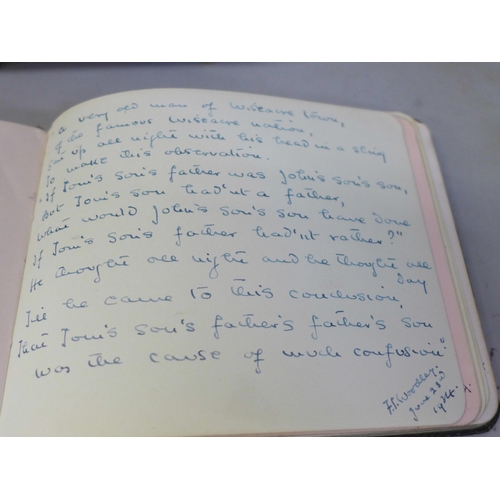 A very old man of Wiseacre town,
Of the famous Wiseacre nation,
Sat up all night with his head in a sling
To make this observation.
"If Tom's son's father was John's son's son,
But Tom's son had'nt a father,
What would John's son's son have done
If Tom's son's father had'nt rather?"
He thought all night and he thought all
Day
Till he came to this conclusion,
That Tom's son's father's father's son
was the cause of much confusion"
June 2nd
1924.